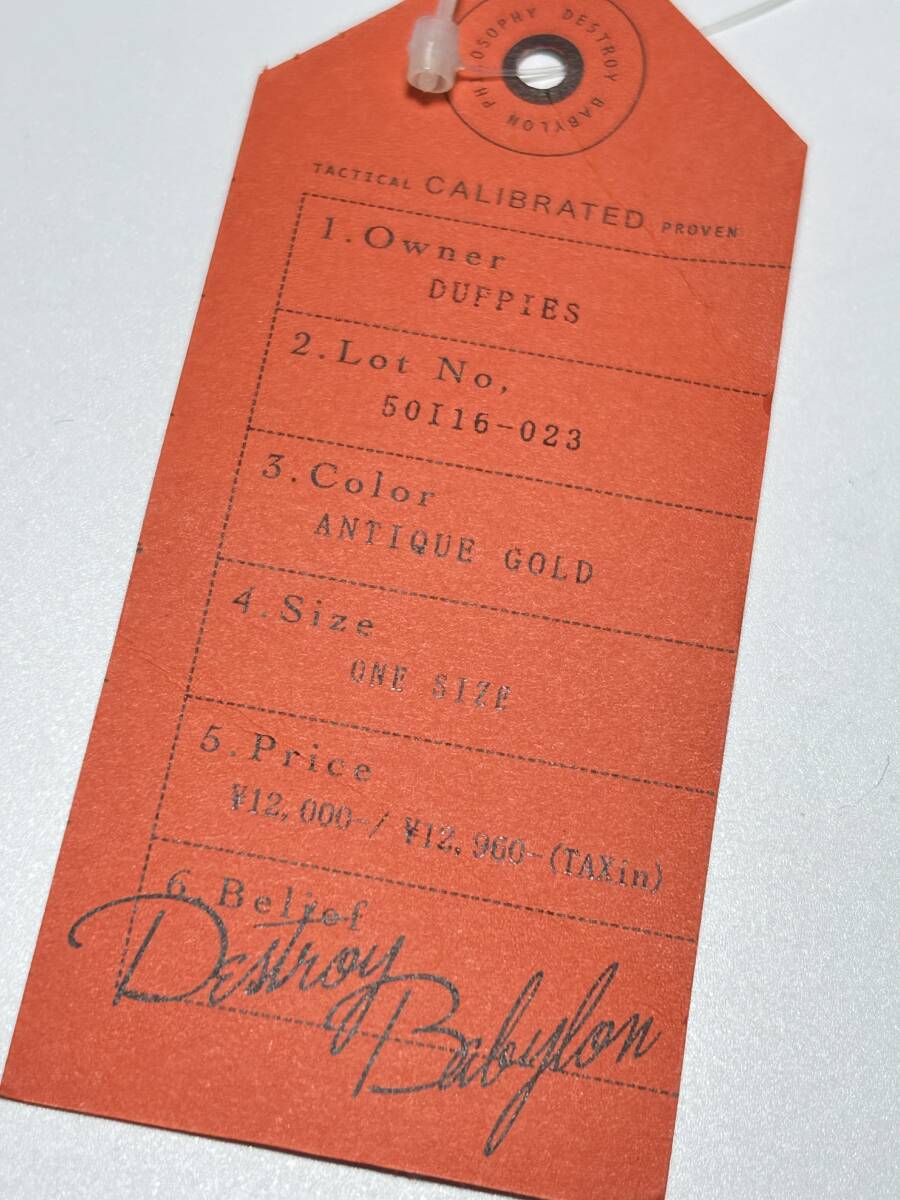 PHILOSOPHY DESTROY BABYLON
TACTICAL CALIBRATED PROVEN
1.Owner
DUPPIES
2.Lot No,
50I16-023
3.Color
ANTIQUE GOLD
4.Size
ONE SIZE
5.Price
¥12,000-/ ¥12,960-(TAXin)
6.Belief
Destroy Babylon